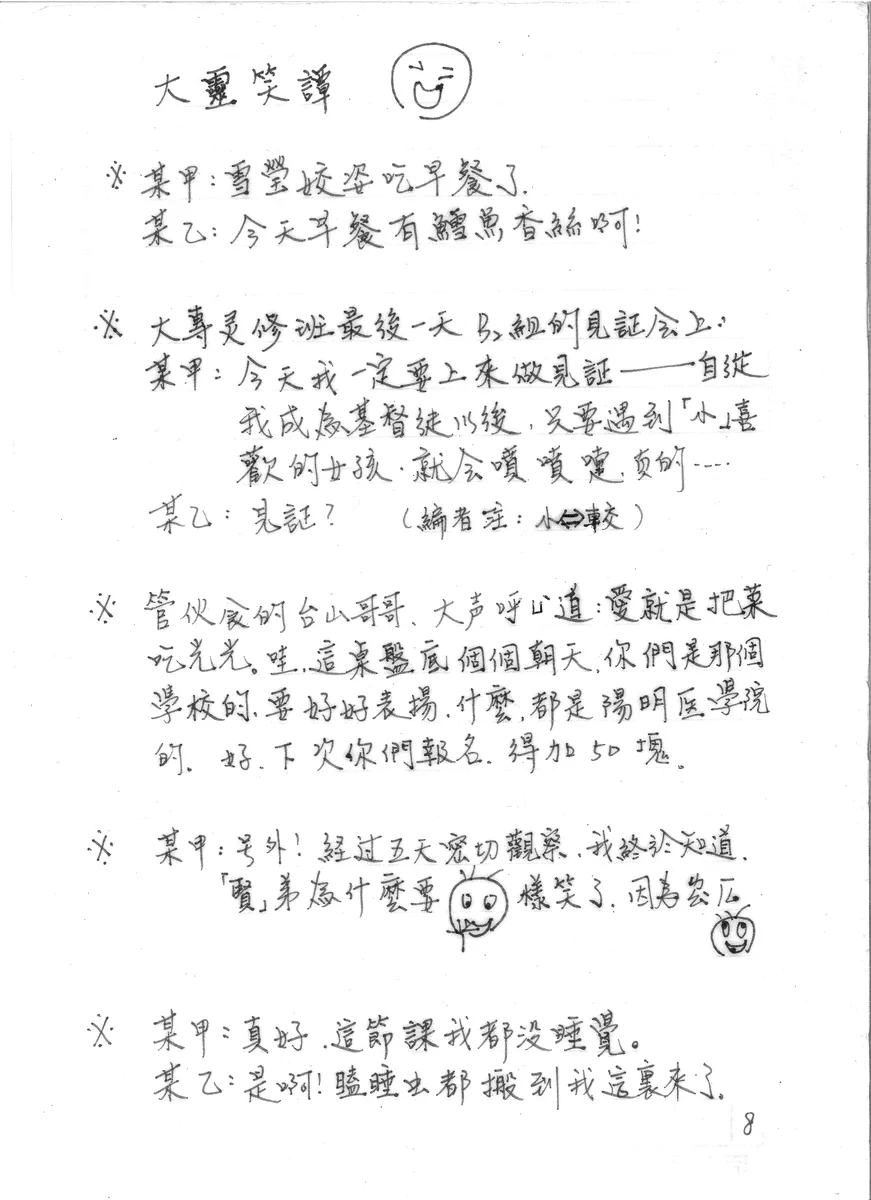 大靈笑譚
※ 某甲：雪瑩姣姿吃早餐了.
某乙：今天早餐有鱈魚香絲啊！
※ 大專灵修班最後一天 B₂組的見証会上：
某甲：今天我一定要上來做見証——自從
我成為基督徒以後，只要遇到「小」喜
歡的女孩.就会噴 噴 嚏.真的……
某乙：見証？ （編者註：小⇔較）
※ 管伙食的台山哥哥、大声呼心道：愛就是把菜
吃光光。哇.這桌盤底個個朝天.你們是那個
學校的、要好好表揚.什麼.都是陽明医學院
的. 好.下次你們報名.得加50塊.
※ 某甲：号外！經过五天密切觀察.我終於知道.
「賢」弟為什麼要 樣笑了.因為
※ 某甲：真好.這節課我都没睡覺。
某乙：是啊！瞌睡虫都搬到我這裏來了.
8